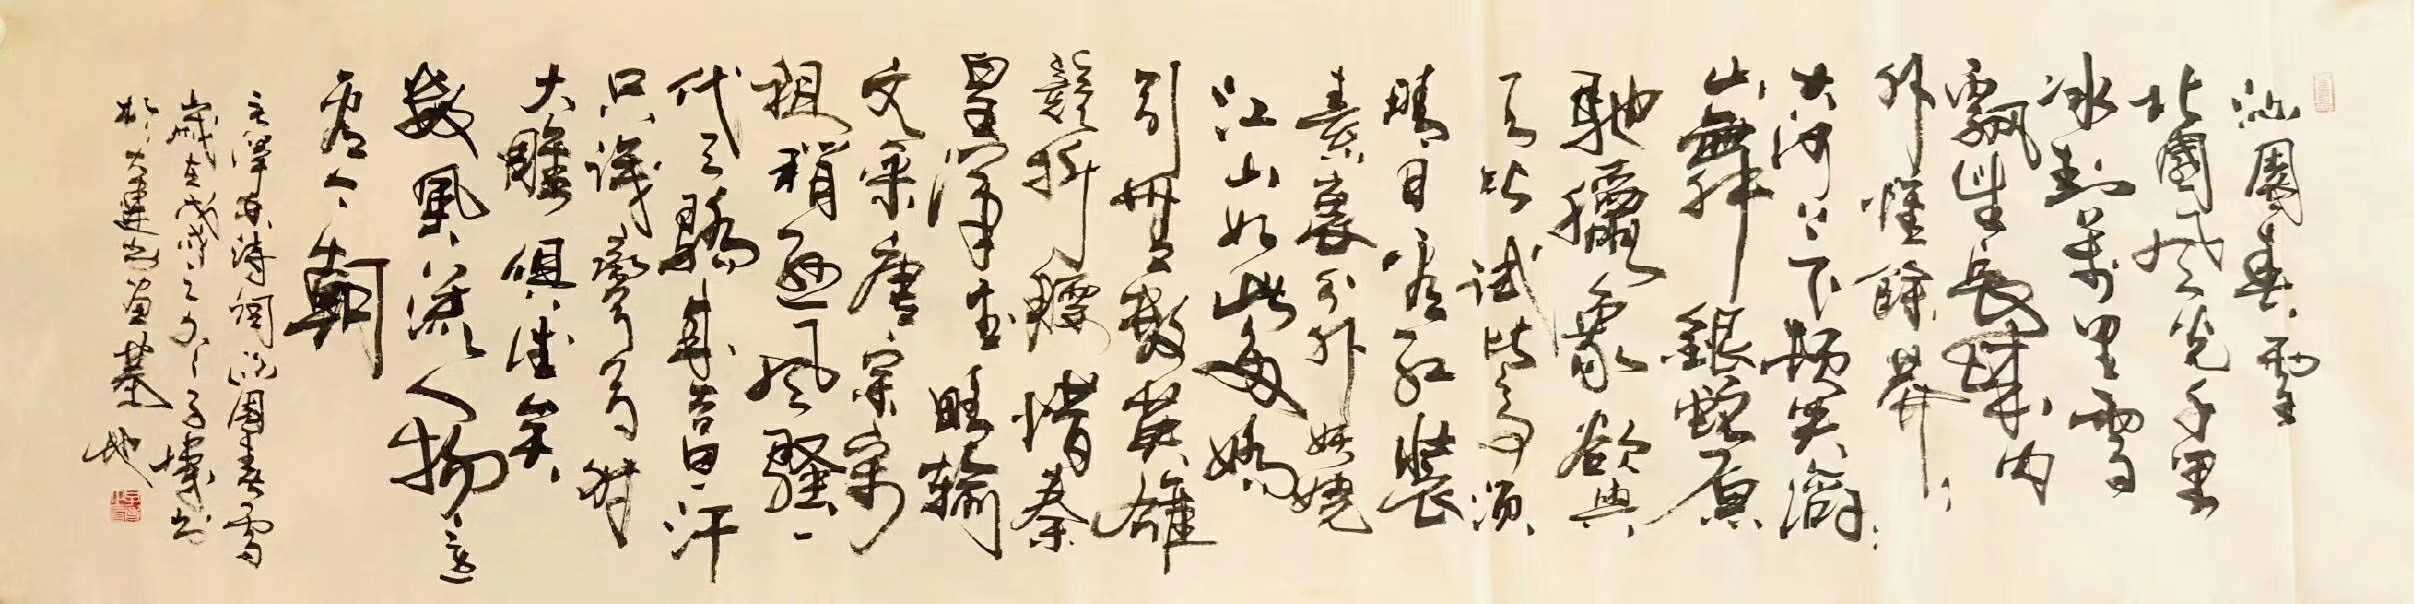 沁園春雪
北國风光千里
冰封萬里雪
飄望長城内
外惟餘莽〻
大河上下頓失滔〻
山舞銀蛇原
馳臘象欲與
天公試比高須
晴日看紅裝
素裹分外妖嬈
江山如此多嬌
引無數英雄
競折腰惜秦
皇漢武略輸
文采唐宗宋
祖稍遜风騷一
代天驕成吉思汗
只識彎弓射
大雕俱往矣
數風流人物還
看今朝
毛澤東詩詞沁園春雪
歲在戊戌之
於大連